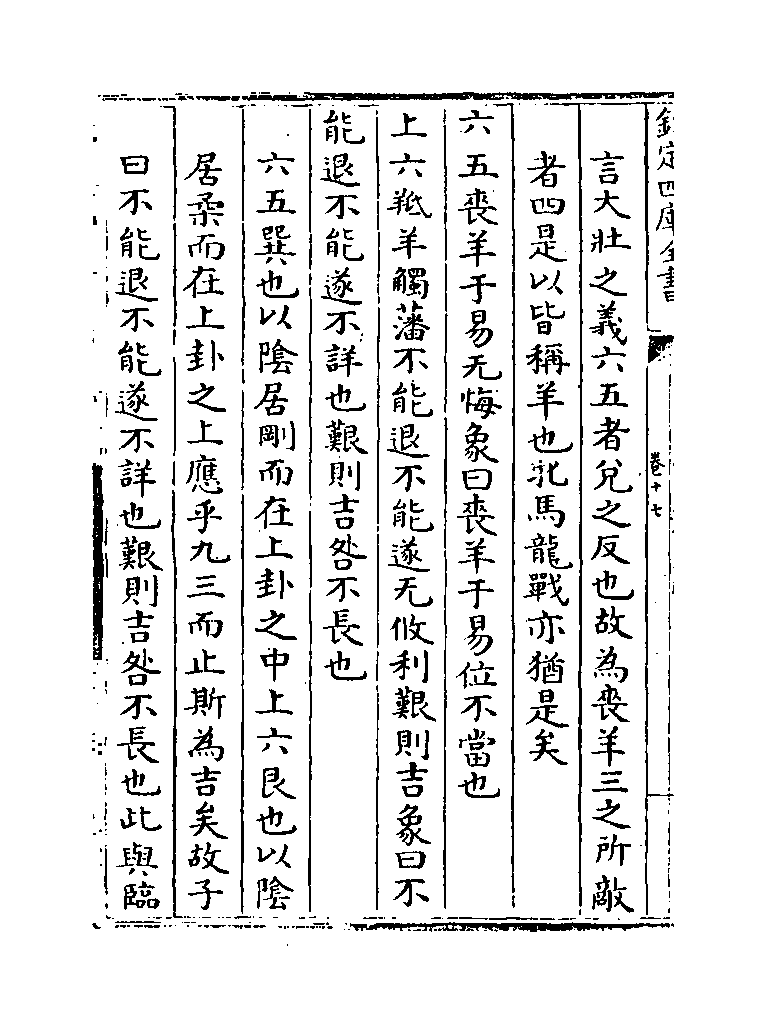 欽定四庫全書
卷十七
言大壯之義六五者兌之反也故為喪羊三之所敵
者四是以皆稱羊也牝馬龍戰亦猶是矣
六五喪羊于易无悔象曰喪羊于易位不當也
上六羝羊觸藩不能退不能遂无攸利艱則吉象曰不
能退不能遂不詳也艱則吉咎不長也
六五巽也以陰居剛而在上卦之中上六艮也以陰
居柔而在上卦之上應乎九三而止斯為吉矣故子
曰不能退不能遂不詳也艱則吉咎不長也此與臨